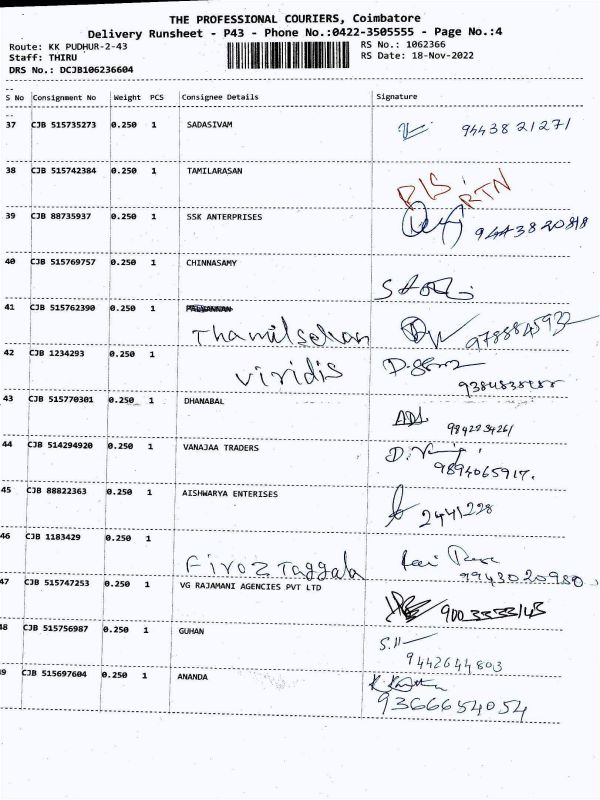 THE PROFESSIONAL COURIERS, Coimbatore
Delivery Runsheet - P43 - Phone No.:0422-3505555 - Page No.:4
Route: KK PUDHUR-2-43 RS No.: 1062366
Staff: THIRU RS Date: 18-Nov-2022
DRS No.: DCJB106236604
S No Consignment No Weight PCS Consignee Details Signature
37 CJB 515735273 0.250 1 SADASIVAM 9443821271
38 CJB 515742384 0.250 1 TAMILARASAN RTN
39 CJB 88735937 0.250 1 SSK ANTERPRISES 9443820818
40 CJB 515769757 0.250 1 CHINNASAMY
41 CJB 515762390 0.250 1 Thamilselvan
42 CJB 1234293 0.250 1 viridis
43 CJB 515770301 0.250 1 DHANABAL
44 CJB 514294920 0.250 1 VANAJAA TRADERS 9894065917.
45 CJB 88822363 0.250 1 AISHWARYA ENTERISES 2441228
46 CJB 1183429 0.250 1 Firoz Taggala 9943020980
47 CJB 515747253 0.250 1 VG RAJAMANI AGENCIES PVT LTD
48 CJB 515756987 0.250 1 GUHAN 9442644803
49 CJB 515697604 0.250 1 ANANDA 9366654054